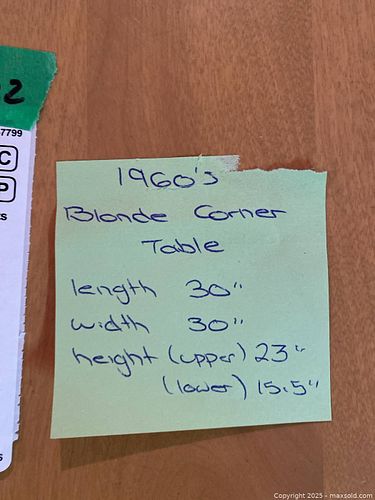 2
7799
C
P
S
1960's
Blonde Corner
Table
length 30"
width 30"
height (upper) 23"
(lower) 15.5"
s
Copyright 2025 - maxsold.com